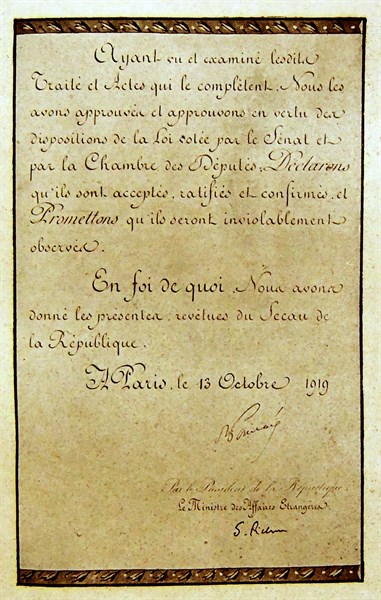 Ayant vu et examiné lesdits
Traité et Actes qui le complètent, Nous les
avons approuvés et approuvons en vertu des
dispositions de la Loi votée par le Sénat et
par la Chambre des Députés, Déclarons
qu'ils sont acceptés, ratifiés et confirmés, et
Promettons qu'ils seront inviolablement
observés.
En foi de quoi, Nous avons
donné les présentes, revêtues du Sceau de
la République.
A Paris, le 13 Octobre 1919
Par le Président de la République
Le Ministre des Affaires Etrangères
S. Pichon